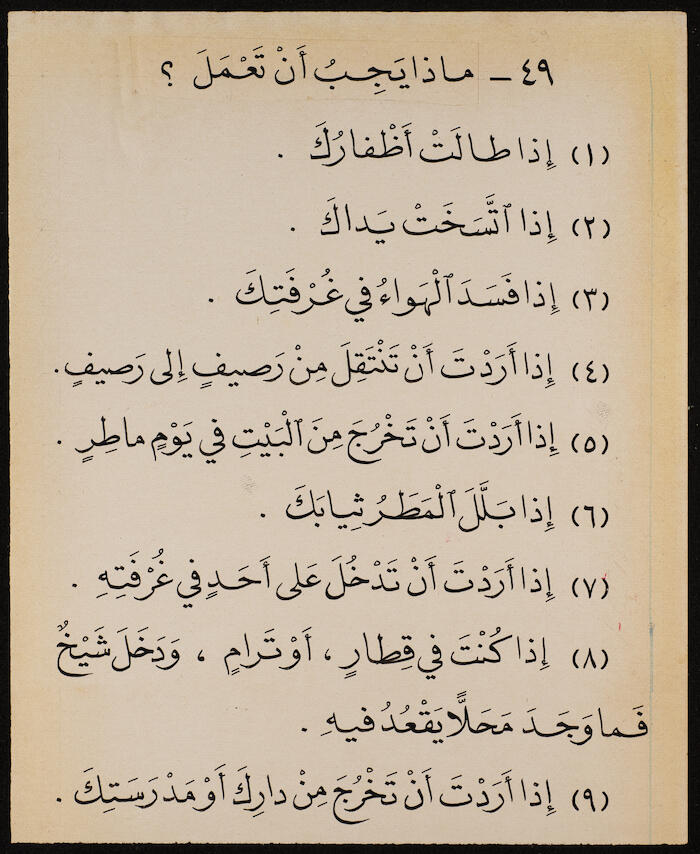 ٤٩ ـ ماذا يَجِبُ أَنْ تَعْمَلَ ؟
(١) إِذا طالَتْ أَظْفارُكَ .
(٢) إِذا ٱتَّسَخَتْ يَداكَ .
(٣) إِذا فَسَدَ ٱلْهَواءُ في غُرْفَتِكَ .
(٤) إِذا أَرَدْتَ أَنْ تَنْتَقِلَ مِنْ رَصيفٍ إِلى رَصيفٍ .
(٥) إِذا أَرَدْتَ أَنْ تَخْرُجَ مِنَ ٱلْبَيْتِ في يَوْمٍ ماطِرٍ .
(٦) إِذا بَلَّلَ ٱلْمَطَرُ ثِيابَكَ .
(٧) إِذا أَرَدْتَ أَنْ تَدْخُلَ عَلى أَحَدٍ في غُرْفَتِهِ .
(٨) إِذا كُنْتَ في قِطارٍ ، أَوْ تَرامٍ ، وَدَخَلَ شَيْخٌ
فَما وَجَدَ مَحَلًّا يَقْعُدُ فيهِ .
(٩) إِذا أَرَدْتَ أَنْ تَخْرُجَ مِنْ دارِكَ أَوْ مَدْرَسَتِكَ .